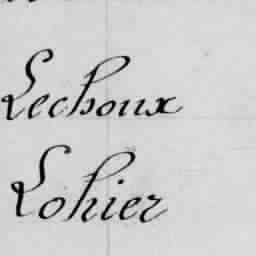 Lechoux
Lohier